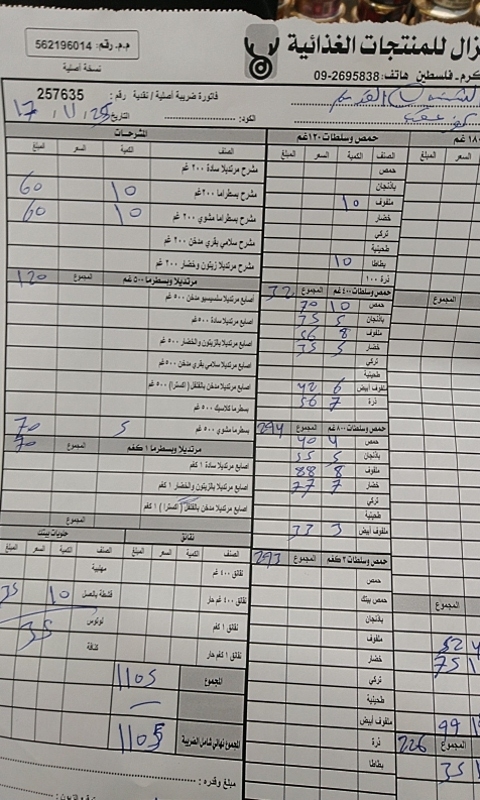 م.م. رقم: 562196014
نسخة أصلية
زال للمنتجات الغذائية
كرم - فلسطين هاتف: 2695838-09
فاتورة ضريبية أصلية / نقدية رقم: 257635
التاريخ 17 . 11 . 25
الكود:
المشرحات
الصنف الكمية السعر المبلغ
مشرح مرتديلا سادة ٢٠٠ غم
مشرح بسطراما ٢٠٠ غم 10 60
مشرح بسطراما مشوي ٢٠٠ غم 10 60
مشرح سلامي بقري مدخن ٢٠٠ غم
مشرح مرتديلا زيتون وخضار ٢٠٠ غم
مرتديلا وبسطرما ٥٠٠ غم المجموع 120
اصابع مرتديلا سادة ٥٠٠ غم
اصابع مرتديلا بالزيتون والخضار ٥٠٠ غم
اصابع مرتديلا سلامي بقري مدخن ٥٠٠ غم
اصابع مرتديلا مدخن بالفلفل (اكسترا) ٥٠٠ غم
بسطرما كلاسيك ٥٠٠ غم
بسطرما مشوي ٥٠٠ غم 5 70
مرتديلا وبسطرما ١ كغم المجموع 70
اصابع مرتديلا سادة ١ كغم
اصابع مرتديلا بالزيتون والخضار ١ كغم
اصابع مرتديلا مدخن بالفلفل (اكسترا) ١ كغم
المجموع
نقانق
الصنف الكمية السعر المبلغ
نقانق ٤٠٠ غم
نقانق ٤٠٠ غم حار
نقانق ١ كغم
نقانق ١ كغم حار
حلويات بيتك
الصنف الكمية السعر المبلغ
مهلبية
قشطة بالعسل 10 35
لوتوس 35
كنافة
المجموع 1105
المجموع نهائي شامل الضريبة 1105
مبلغ وقدره:
حمص وسلطات ١٢٠ غم
الصنف الكمية السعر المبلغ
حمص
باذنجان
ملفوف 10
خضار
تركي
طحينية
بطاطا 10
ذرة ١٠٠
حمص وسلطات ٤٠٠ غم المجموع 32
حمص 10 70
باذنجان 5 35
ملفوف 8 56
خضار 5 35
تركي
طحينية
ملفوف أبيض 6 42
ذرة 7 56
حمص وسلطات ٨٠٠ غم المجموع 294
حمص 4 40
باذنجان 5 55
ملفوف 8 88
خضار 7 77
تركي
طحينية
ملفوف أبيض 3 33
حمص وسلطات ٢ كغم المجموع 293
حمص
حمص بيتك
باذنجان
ملفوف 52
خضار 75
تركي
طحينية
ملفوف أبيض 99
ذرة المجموع 226
بطاطا 35
١٨٠ غم
السعر المبلغ
المجموع
المجموع